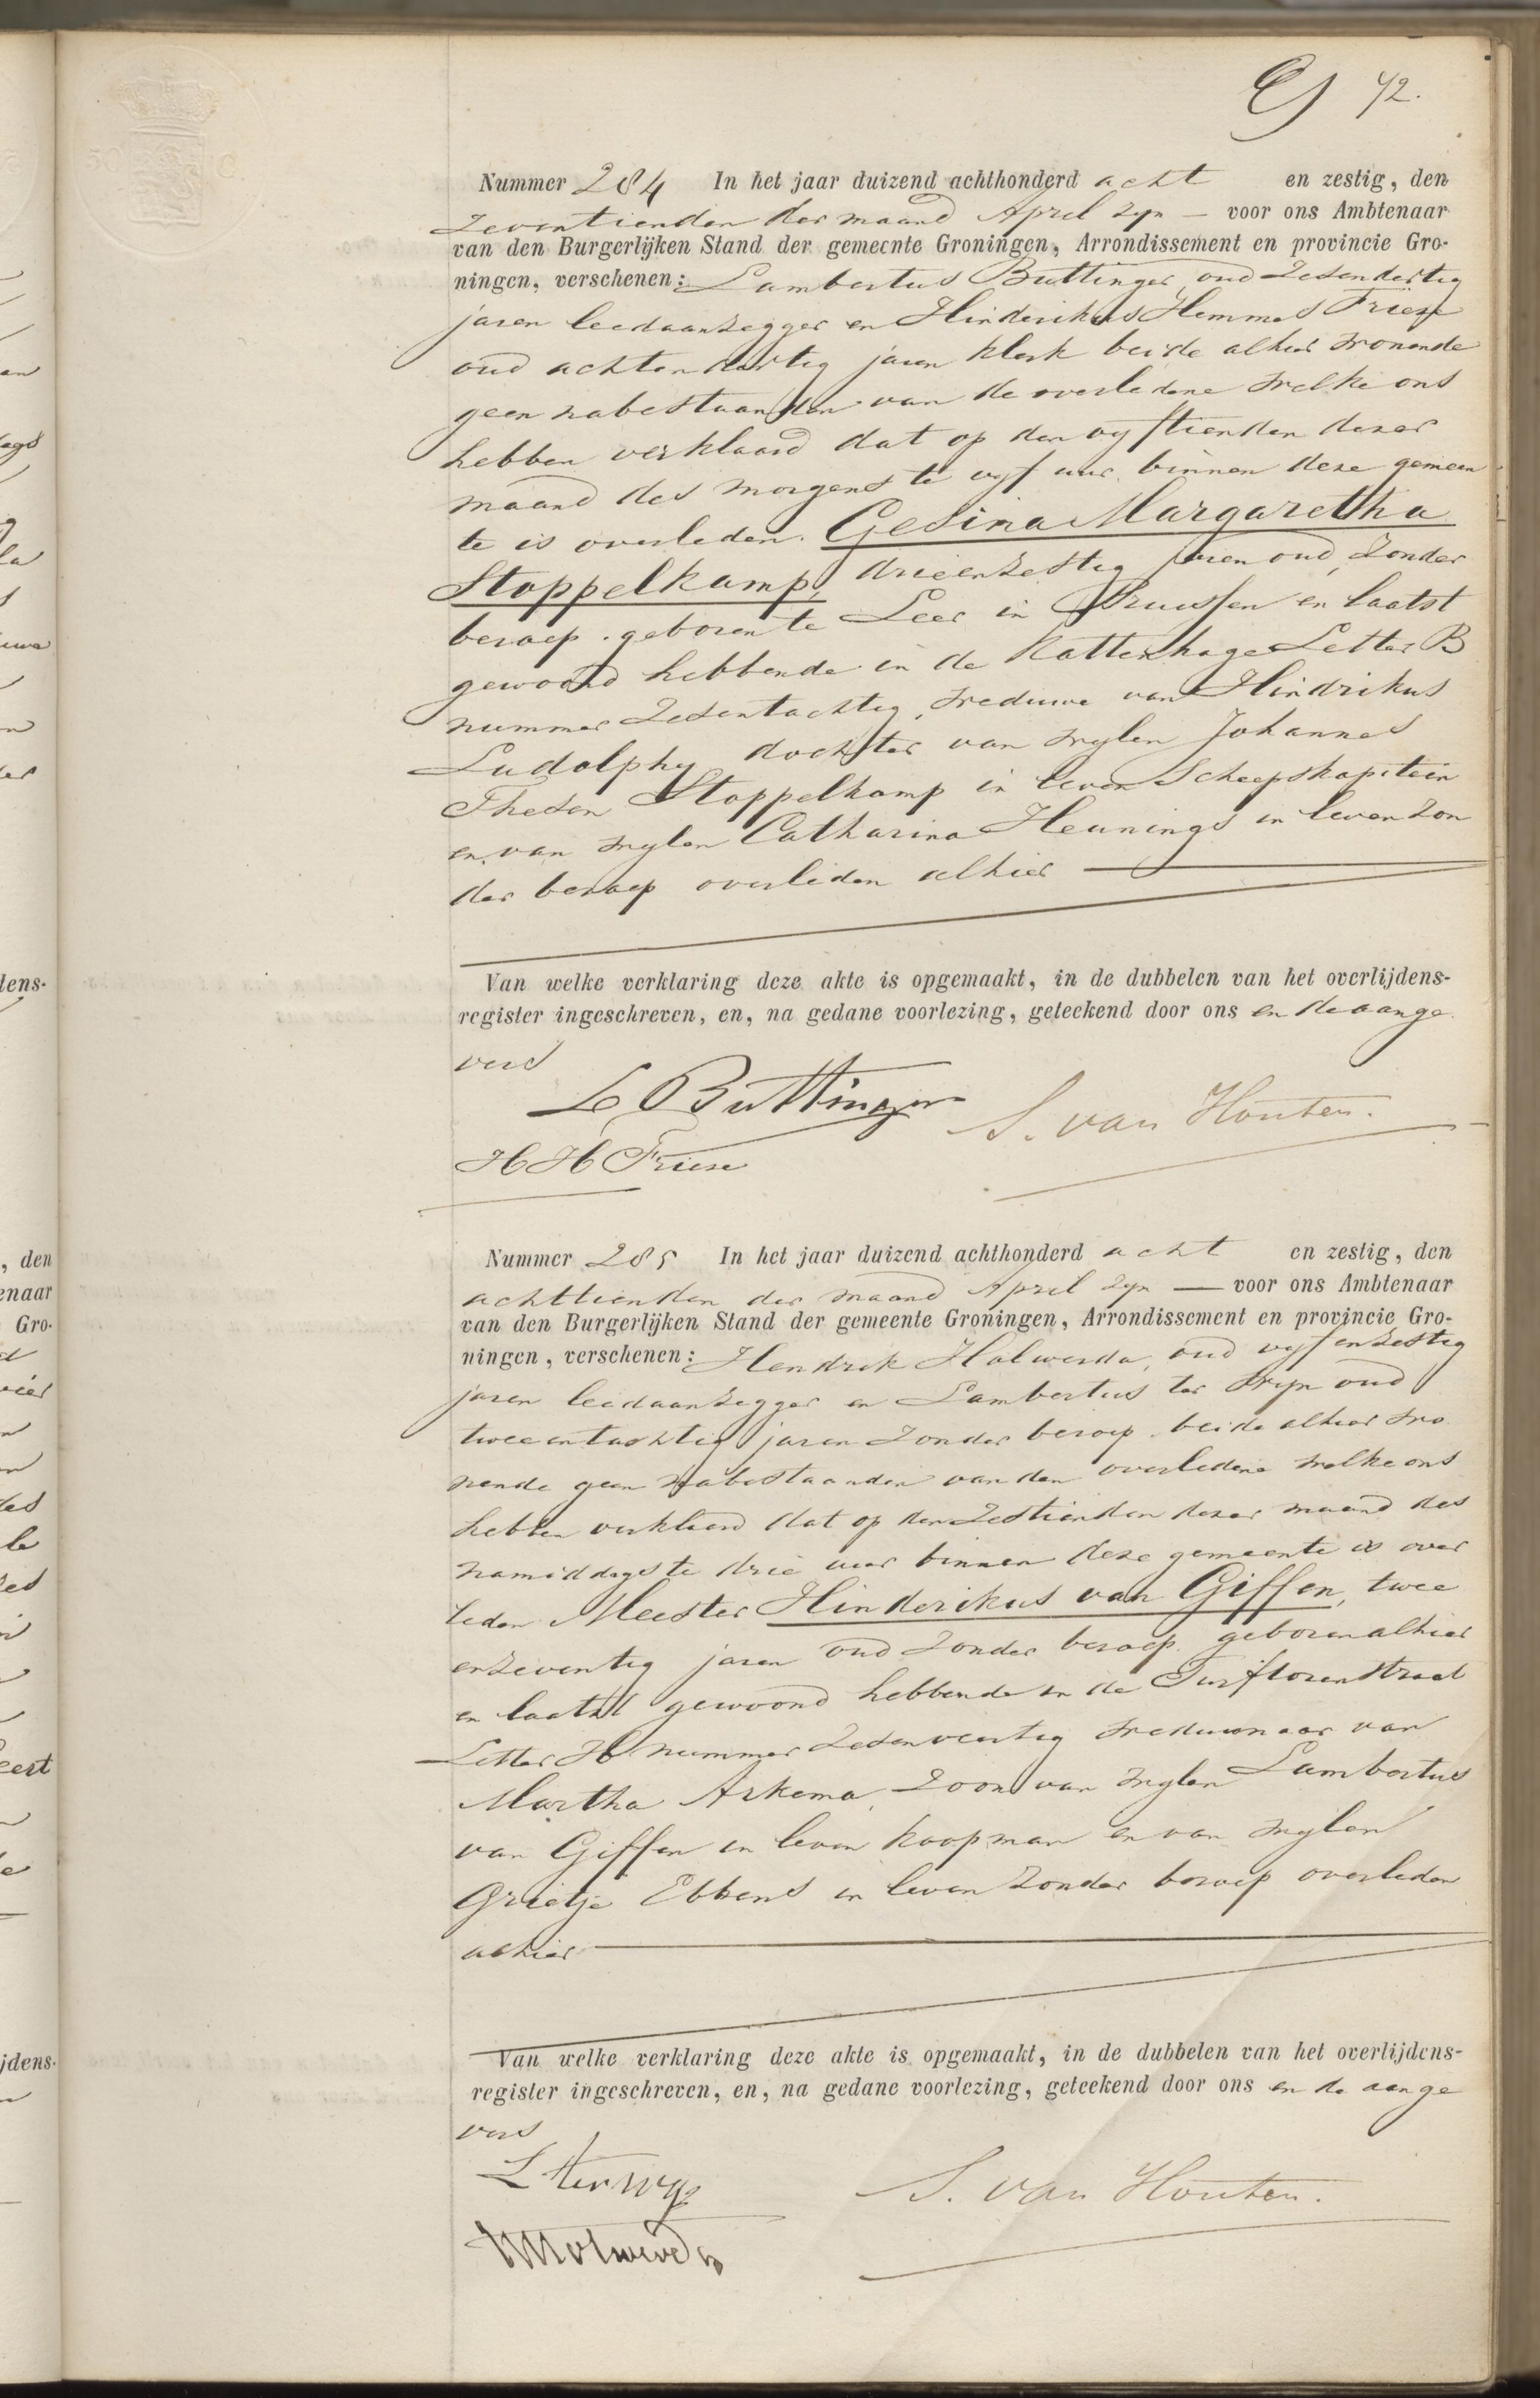 72.
Nummer 284 In het jaar duizend achthonderd acht en zestig, den
zeventienden der maand April zyn — voor ons Ambtenaar
van den Burgerlijken Stand der gemeente Groningen, Arrondissement en provincie Gro-
ningen, verschenen: Lambertus Buttinger, oud zesendertig
jaren leedaanzegger en Hinderikus Hemmes Friese
oud achtendertig jaren klerk beide alhier wonende
geen nabestaanden van de overledene welke ons
hebben verklaard dat op den vyftienden dezer
maand des morgens te vyf uur binnen deze gemeen
te is overleden. Gesina Margaretha
Stoppelkamp, drieenzestig jaren oud, zonder
beroep. geboren te Leer in Pruissen en laatst
gewoond hebbende in de Kattenhage Letter B
nummer zesentachtig, weduwe van Hindrikus
Ludolphy dochter van wylen Johannes
Theden Stoppelkamp in leven Scheepskapitein
en van wylen Catharina Heunings in leven zon
der beroep overleden alhier
Van welke verklaring deze akte is opgemaakt, in de dubbelen van het overlijdens-
register ingeschreven, en, na gedane voorlezing, geteekend door ons en de aange
vers
L Buttinger S. van Houten.
H H Friese
Nummer 285 In het jaar duizend achthonderd acht en zestig, den
achttienden der maand April zyn — voor ons Ambtenaar
van den Burgerlijken Stand der gemeente Groningen, Arrondissement en provincie Gro-
ningen, verschenen: Hendrik Holwerda, oud vyfenzestig
jaren leedaanzegger en Lambertus ter Wyn oud
tweeentachtig jaren zonder beroep. beide alhier wo
nende geen nabestaanden van den overledene welke ons
hebben verklaard dat op den zestienden dezer maand des
namiddags te drie uur binnen deze gemeente is over
leden Meester Hinderikus van Giffen, twee
enzeventig jaren oud zonder beroep. geboren alhier
en laatst gewoond hebbende in de Turftorenstraat
Letter H nummer zesenveertig weduwnaar van
Martha Arkema, zoon van wylen Lambertus
van Giffen in leven koopman en van wylen
Grietje Ebbens in leven zonder beroep overleden
alhier
Van welke verklaring deze akte is opgemaakt, in de dubbelen van het overlijdens-
register ingeschreven, en, na gedane voorlezing, geteekend door ons en de aange
vers
L ter Wy S. van Houten.
Holwerda